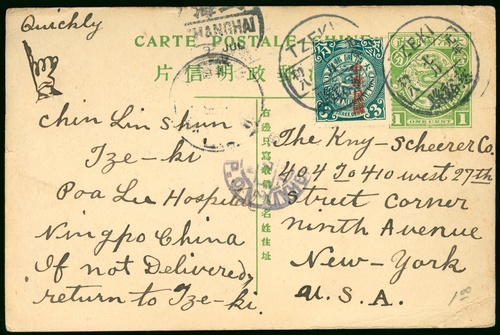 Quickly
SHANGHAI
CARTE POSTALE CHINE
片信明政郵
TZEKI
TZEKI
中華民國
3
1 ONE CENT 1
右邊只寫收信人名姓住址
Chin Lin Shun
Tze-ki
Poa Lee Hospital
Ningpo China
If not Delivered,
return to Tze-ki.
The Kny-Scheerer Co.
404 To 410 west 27th
Street Corner
Ninth Avenue
New-York
U.S.A.
1.00